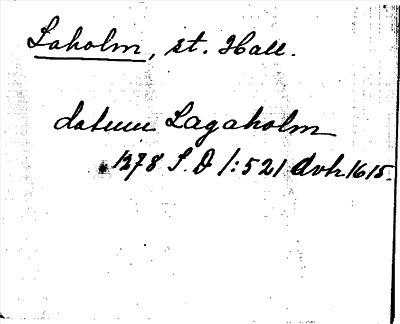 Laholm, st. Hall.
datum Lagaholm
1278 S.D 1:521 avhr 1615.